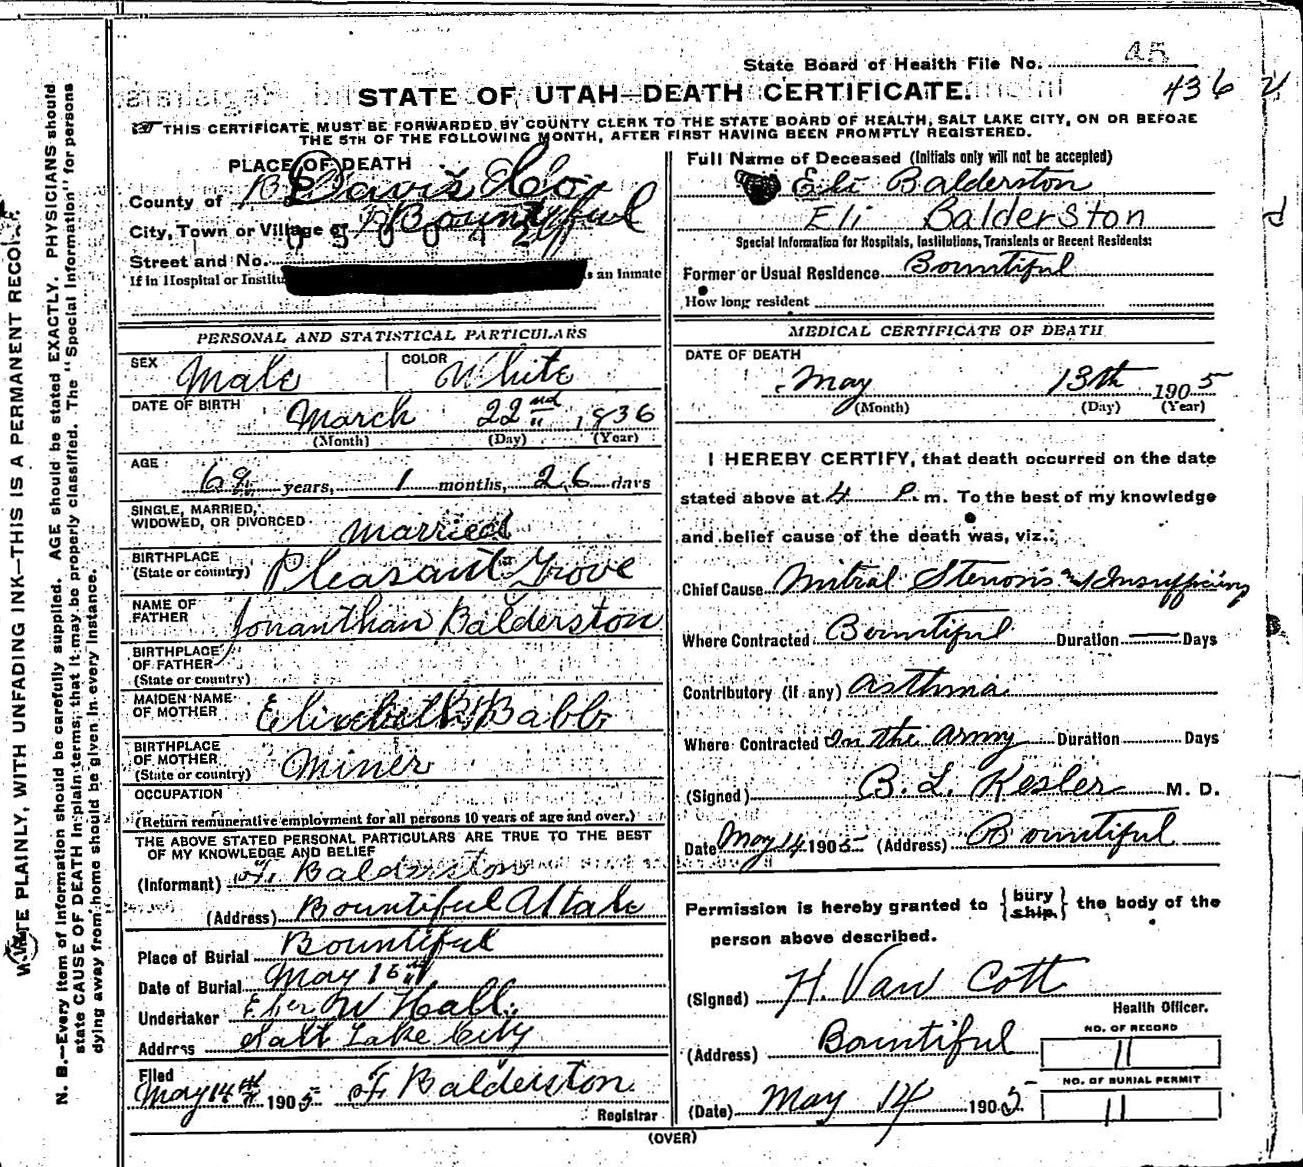 State Board of Health File No. 45
436
STATE OF UTAH—DEATH CERTIFICATE.
THIS CERTIFICATE MUST BE FORWARDED BY COUNTY CLERK TO THE STATE BOARD OF HEALTH, SALT LAKE CITY, ON OR BEFORE
THE 5TH OF THE FOLLOWING MONTH, AFTER FIRST HAVING BEEN PROMPTLY REGISTERED.
PLACE OF DEATH
County of Davis Co
City, Town or Village of Bountiful
050042
Street and No.
If in Hospital or Institu
s an Inmate
Full Name of Deceased (Initials only will not be accepted)
Eli Balderston
Eli Balderston
Special Information for Hospitals, Institutions, Transients or Recent Residents:
Former or Usual Residence Bountiful
How long resident
PERSONAL AND STATISTICAL PARTICULARS
SEX Male COLOR White
DATE OF BIRTH March 22nd, 1836
(Month) (Day) (Year)
AGE 69 years, 1 months, 26 days
SINGLE, MARRIED,
WIDOWED, OR DIVORCED Married
BIRTHPLACE
(State or country) Pleasant Grove
NAME OF
FATHER Jonanthan Balderston
BIRTHPLACE
OF FATHER
(State or country)
MAIDEN NAME
OF MOTHER Elizebeth Babb
BIRTHPLACE
OF MOTHER
(State or country) Miner
OCCUPATION
(Return remunerative employment for all persons 10 years of age and over.)
THE ABOVE STATED PERSONAL PARTICULARS ARE TRUE TO THE BEST
OF MY KNOWLEDGE AND BELIEF
(Informant) F. Balderston
(Address) Bountiful Utah
Place of Burial Bountiful
Date of Burial May 16th
Undertaker Eber W Hall
Address Salt Lake City
Filed
May 14th 1905 F Balderston
Registrar
MEDICAL CERTIFICATE OF DEATH
DATE OF DEATH
May 13th 1905
(Month) (Day) (Year)
I HEREBY CERTIFY, that death occurred on the date
stated above at 4 P. m. To the best of my knowledge
and belief cause of the death was, viz.:
Chief Cause Mitral Stenosis and Insufficiency
Where Contracted Bountiful Duration — Days
Contributory (if any) Asthma
Where Contracted In the Army Duration Days
(Signed) B. L. Kesler M. D.
Date May 14 1905 (Address) Bountiful
Permission is hereby granted to {bury ship} the body of the
person above described.
(Signed) H. Van Cott
Health Officer.
(Address) Bountiful
NO. OF RECORD
11
(Date) May 14 1905
NO. OF BURIAL PERMIT
11
(OVER)
WRITE PLAINLY, WITH UNFADING INK—THIS IS A PERMANENT RECORD
N. B.—Every item of information should be carefully supplied. AGE should be stated EXACTLY. PHYSICIANS should
state CAUSE OF DEATH in plain terms, that it may be properly classified. The "Special Information" for persons
dying away from home should be given in every instance.